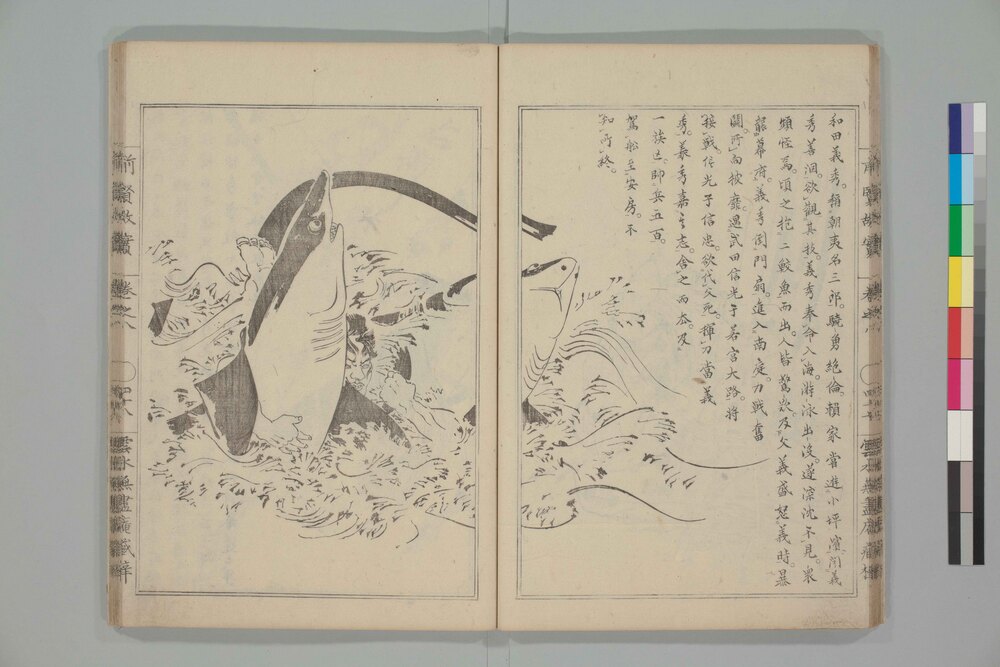 和田義秀。稱朝夷名三郎。驍勇絶倫。賴家嘗遊小坪濱。聞義
秀善泅。欲觀其技。義秀奉命入海。游泳出沒。遂深沈不見。衆
頗怪焉。頃之抱二鮫魚而出。人皆驚歎。及父義盛怒義時暴
襲幕府。義秀闖門扇。進入南庭力戰奮
鬪。所向披靡。遇武田信光于若宮大路。將
接戰。信光子信忠。欲代父死。揮刀當義
秀。義秀嘉其志。舍之而去。及
一族亡。帥兵五百。
駕船至安房。不
知所終。
前賢故實
卷之八
四十八
雲水無盡庵藏梓